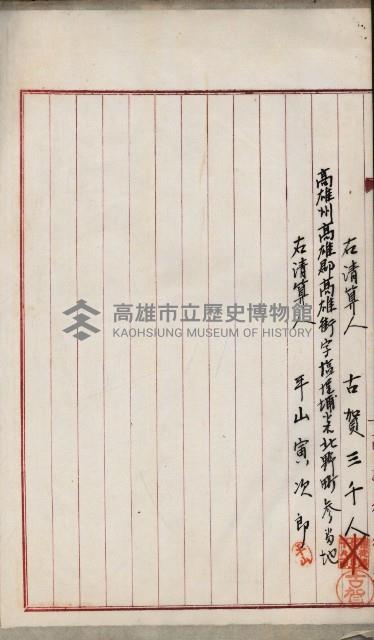 右清算人 古賀三千人
高雄州高雄郡高雄街字塩埕埔 北野町 参番地
右清算人 平山寅次郎
平山
古賀
高雄市立歷史博物館
KAOHSIUNG MUSEUM OF HISTORY